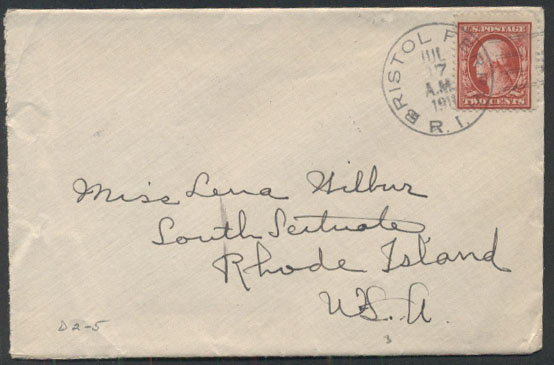 BRISTOL F
JUL
7
A.M.
191
R. I.
U.S. POSTAGE
TWO CENTS
Miss Lena Wilbur
South Scituate
Rhode Island
U.S.A.
D2-5
3